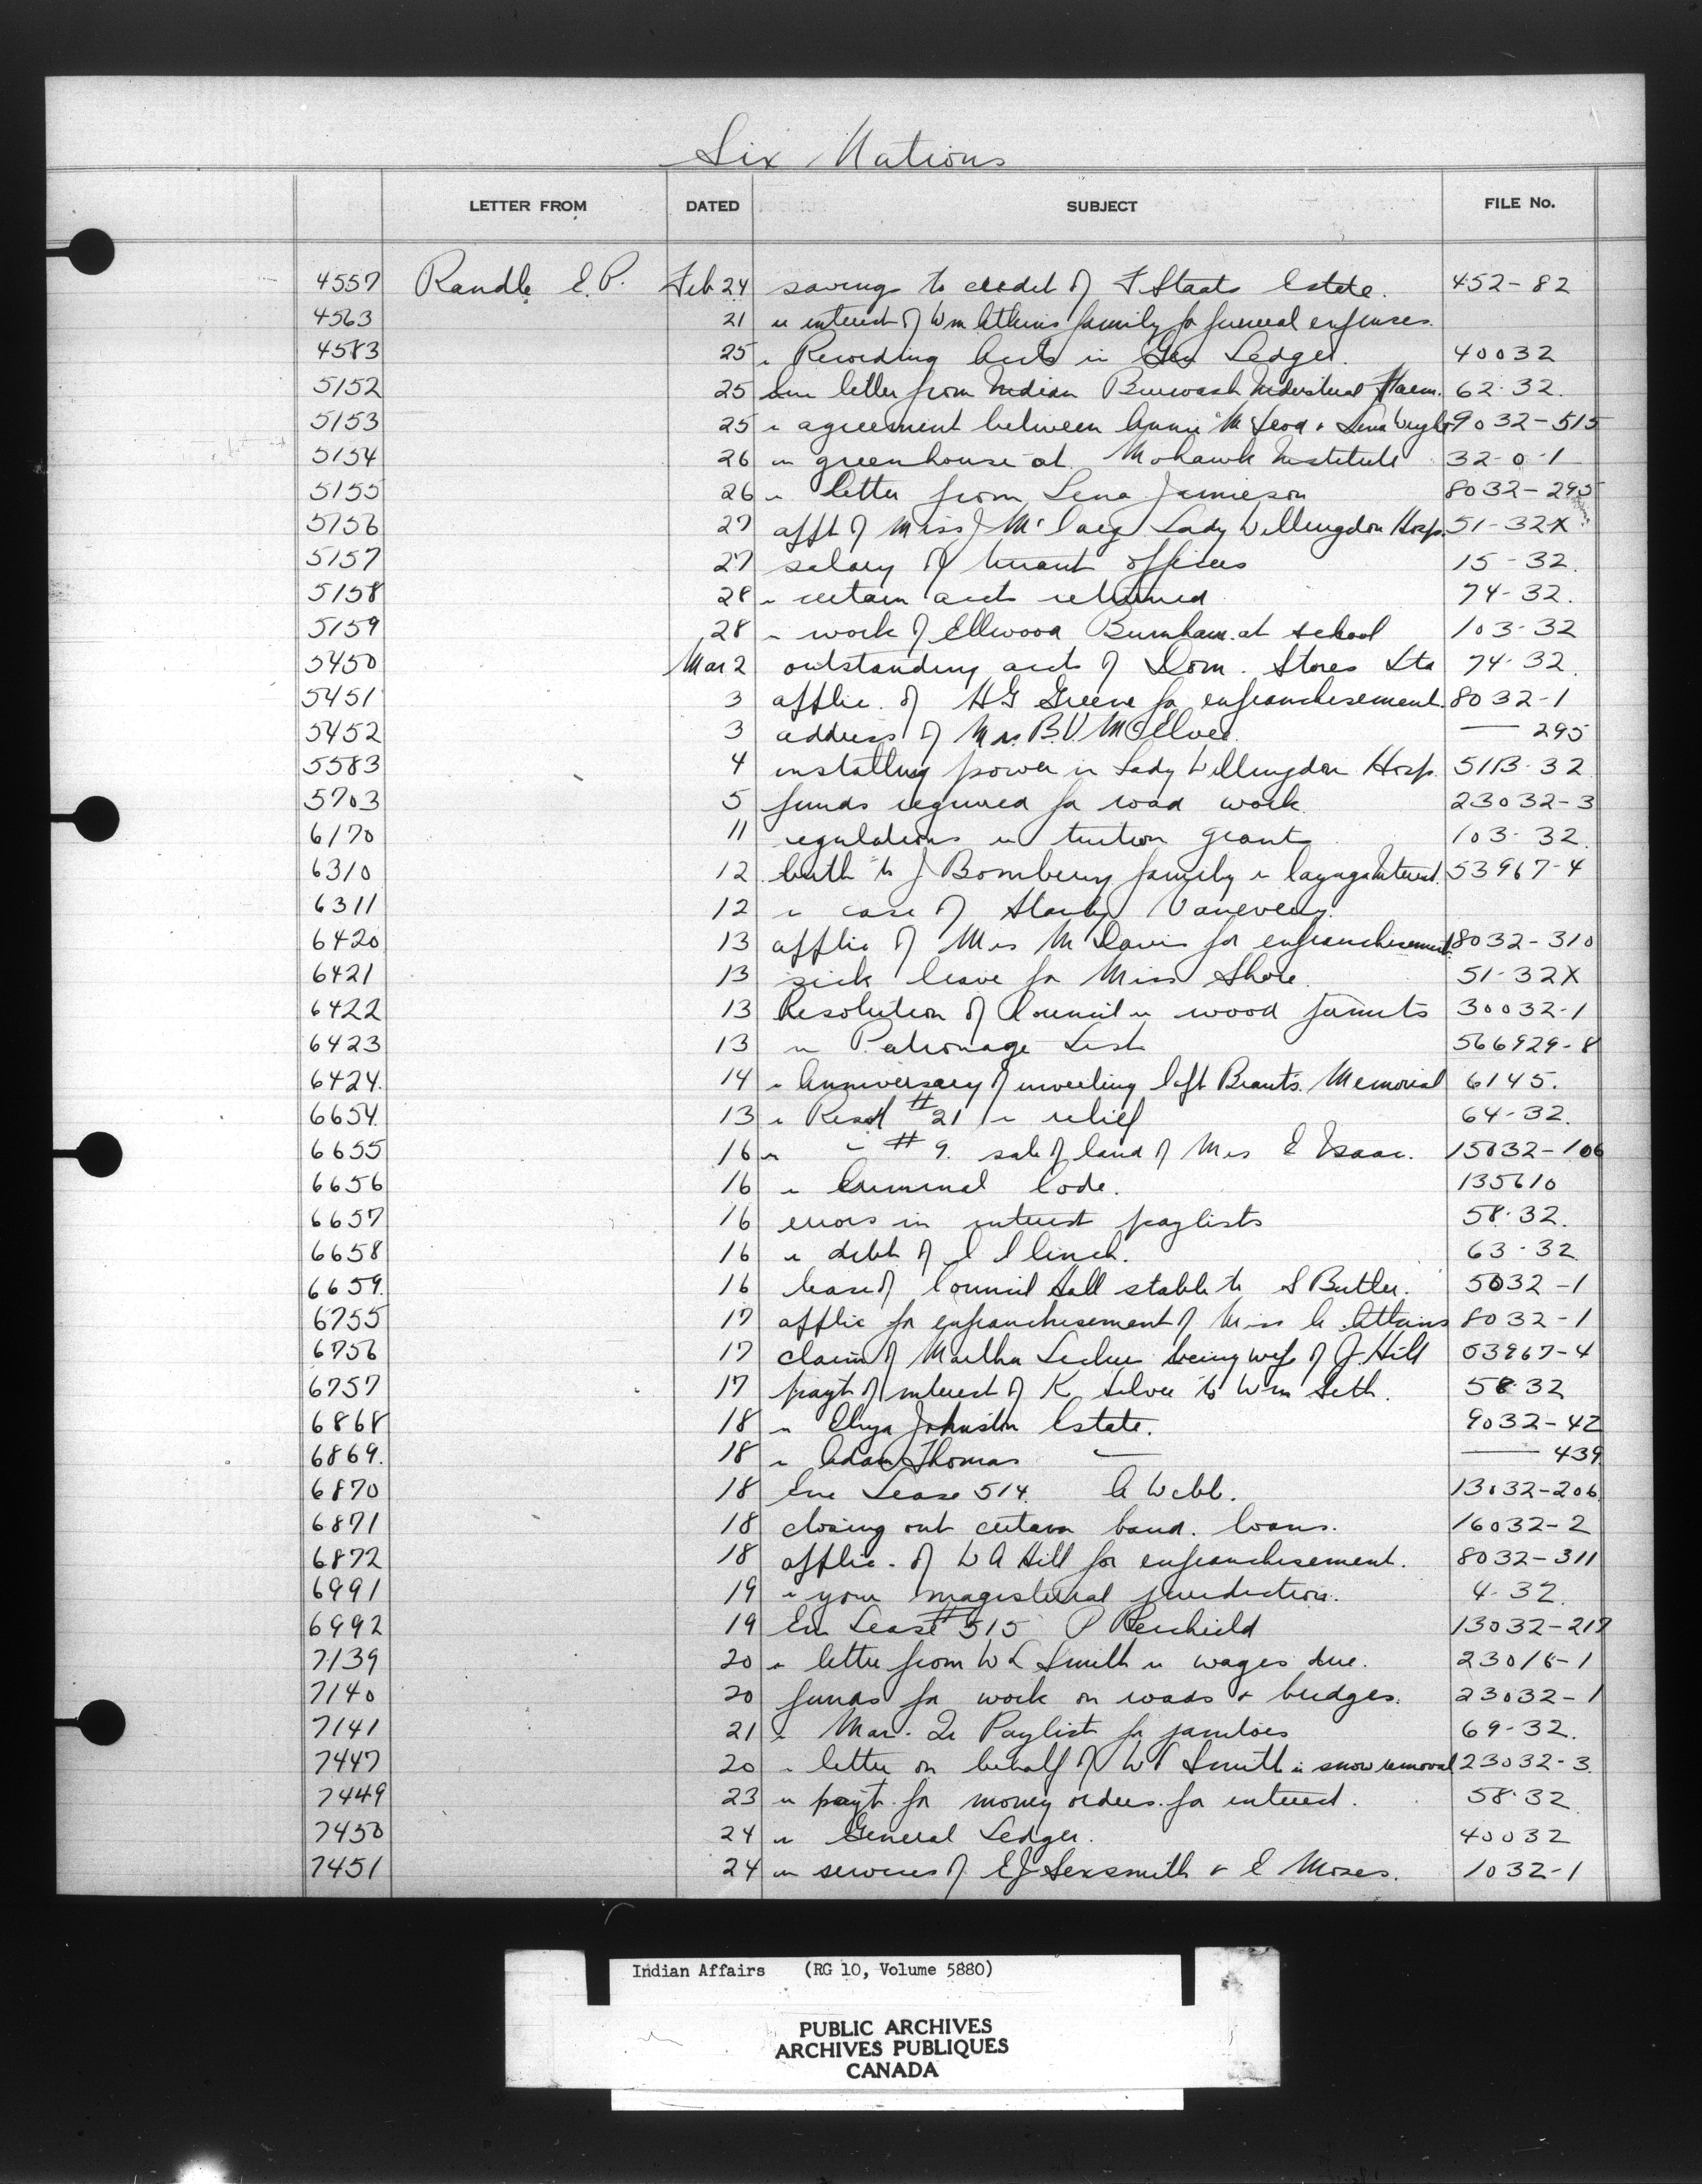 Six Nations
LETTER FROM DATED SUBJECT FILE No.
4557 Randle E.P. Feb 24 savings to credit of F Staats Estate. 452-82
4563 21 re interest of Wm Atkins family for funeral expenses.
4583 25 re Recording accts in Gen Ledger. 40032
5152 25 Enc letter from Indian Burwash Industrial Farm. 62-32.
5153 25 re agreement between Annie McLeod + Lena 9032-515
5154 26 re greenhouse at Mohawk Institute 32-0-1
5155 26 re letter from Lena Jamieson 8032-295
5156 27 appt of Miss J Lady Willingdon Hosp. 51-32X
5157 27 salary of truant officers 15-32.
5158 28 re certain accts returned 74-32.
5159 28 re work of Ellwood Burnham at school 103-32
5450 Mar 2 outstanding accts of Dom. Stores Ltd 74-32.
5451 3 applic. of HG Greene for enfranchisement. 8032-1
5452 3 address of Mrs. B.V. McElvee. — 295
5583 4 installing power in Lady Willingdon Hosp. 51B-32
5703 5 funds required for road work. 23032-3
6170 11 regulations re tuition grants 103-32.
6310 12 birth to J Bomberry family re Cayuga Interest. 53967-4
6311 12 re case of Vanevery.
6420 13 applic of Mrs M Davis for enfranchisement 8032-310
6421 13 sick leave for Miss Shore. 51-32X
6422 13 Resolution of Council re wood permits 30032-1
6423 13 re Patronage List 566929-8
6424. 14 re Anniversary of unveiling Capt Brant's Memorial 6145.
6654 13 re Resol #21 re relief 64-32.
6655 16 re " #9. sale of land of Mrs E Isaac. 15032-106
6656 16 re Criminal Code. 135610
6657 16 errors in interest paylists 58-32.
6658 16 re debt of 63-32.
6659. 16 lease of Council Hall stable to S Butler. 5032-1
6755 17 applic for enfranchisement of Miss A. Atkins 8032-1
6756 17 claim of Martha being wife of J. Hill 53967-4
6757 17 payt of interest of K Silver to Wm Seth. 58-32
6868 18 re Elija Johnston Estate. 9032-42
6869. 18 re Adam Thomas — — 439
6870 18 Enc Lease 514. A Webb. 13032-206
6871 18 closing out certain band. loans. 16032-2
6872 18 applic. of W A Hill for enfranchisement. 8032-311
6991 19 re your magisterial jurisdiction. 4-32.
6992 19 Enc Lease #515 P 13032-217
7139 20 re letter from W L Smith re wages due. 23016-1
7140 20 funds for work on roads + bridges. 23032-1
7141 21 re Mar. Qr Paylist for janitors 69-32.
7447 20 re letter on behalf of W Smith re snow removal 23032-3.
7449 23 re payt. for money orders for interest. 58-32
7450 24 re General Ledger. 40032
7451 24 re services of EJ Sexsmith + E Moses. 1032-1
Indian Affairs (RG 10, Volume 5880)
PUBLIC ARCHIVES
ARCHIVES PUBLIQUES
CANADA